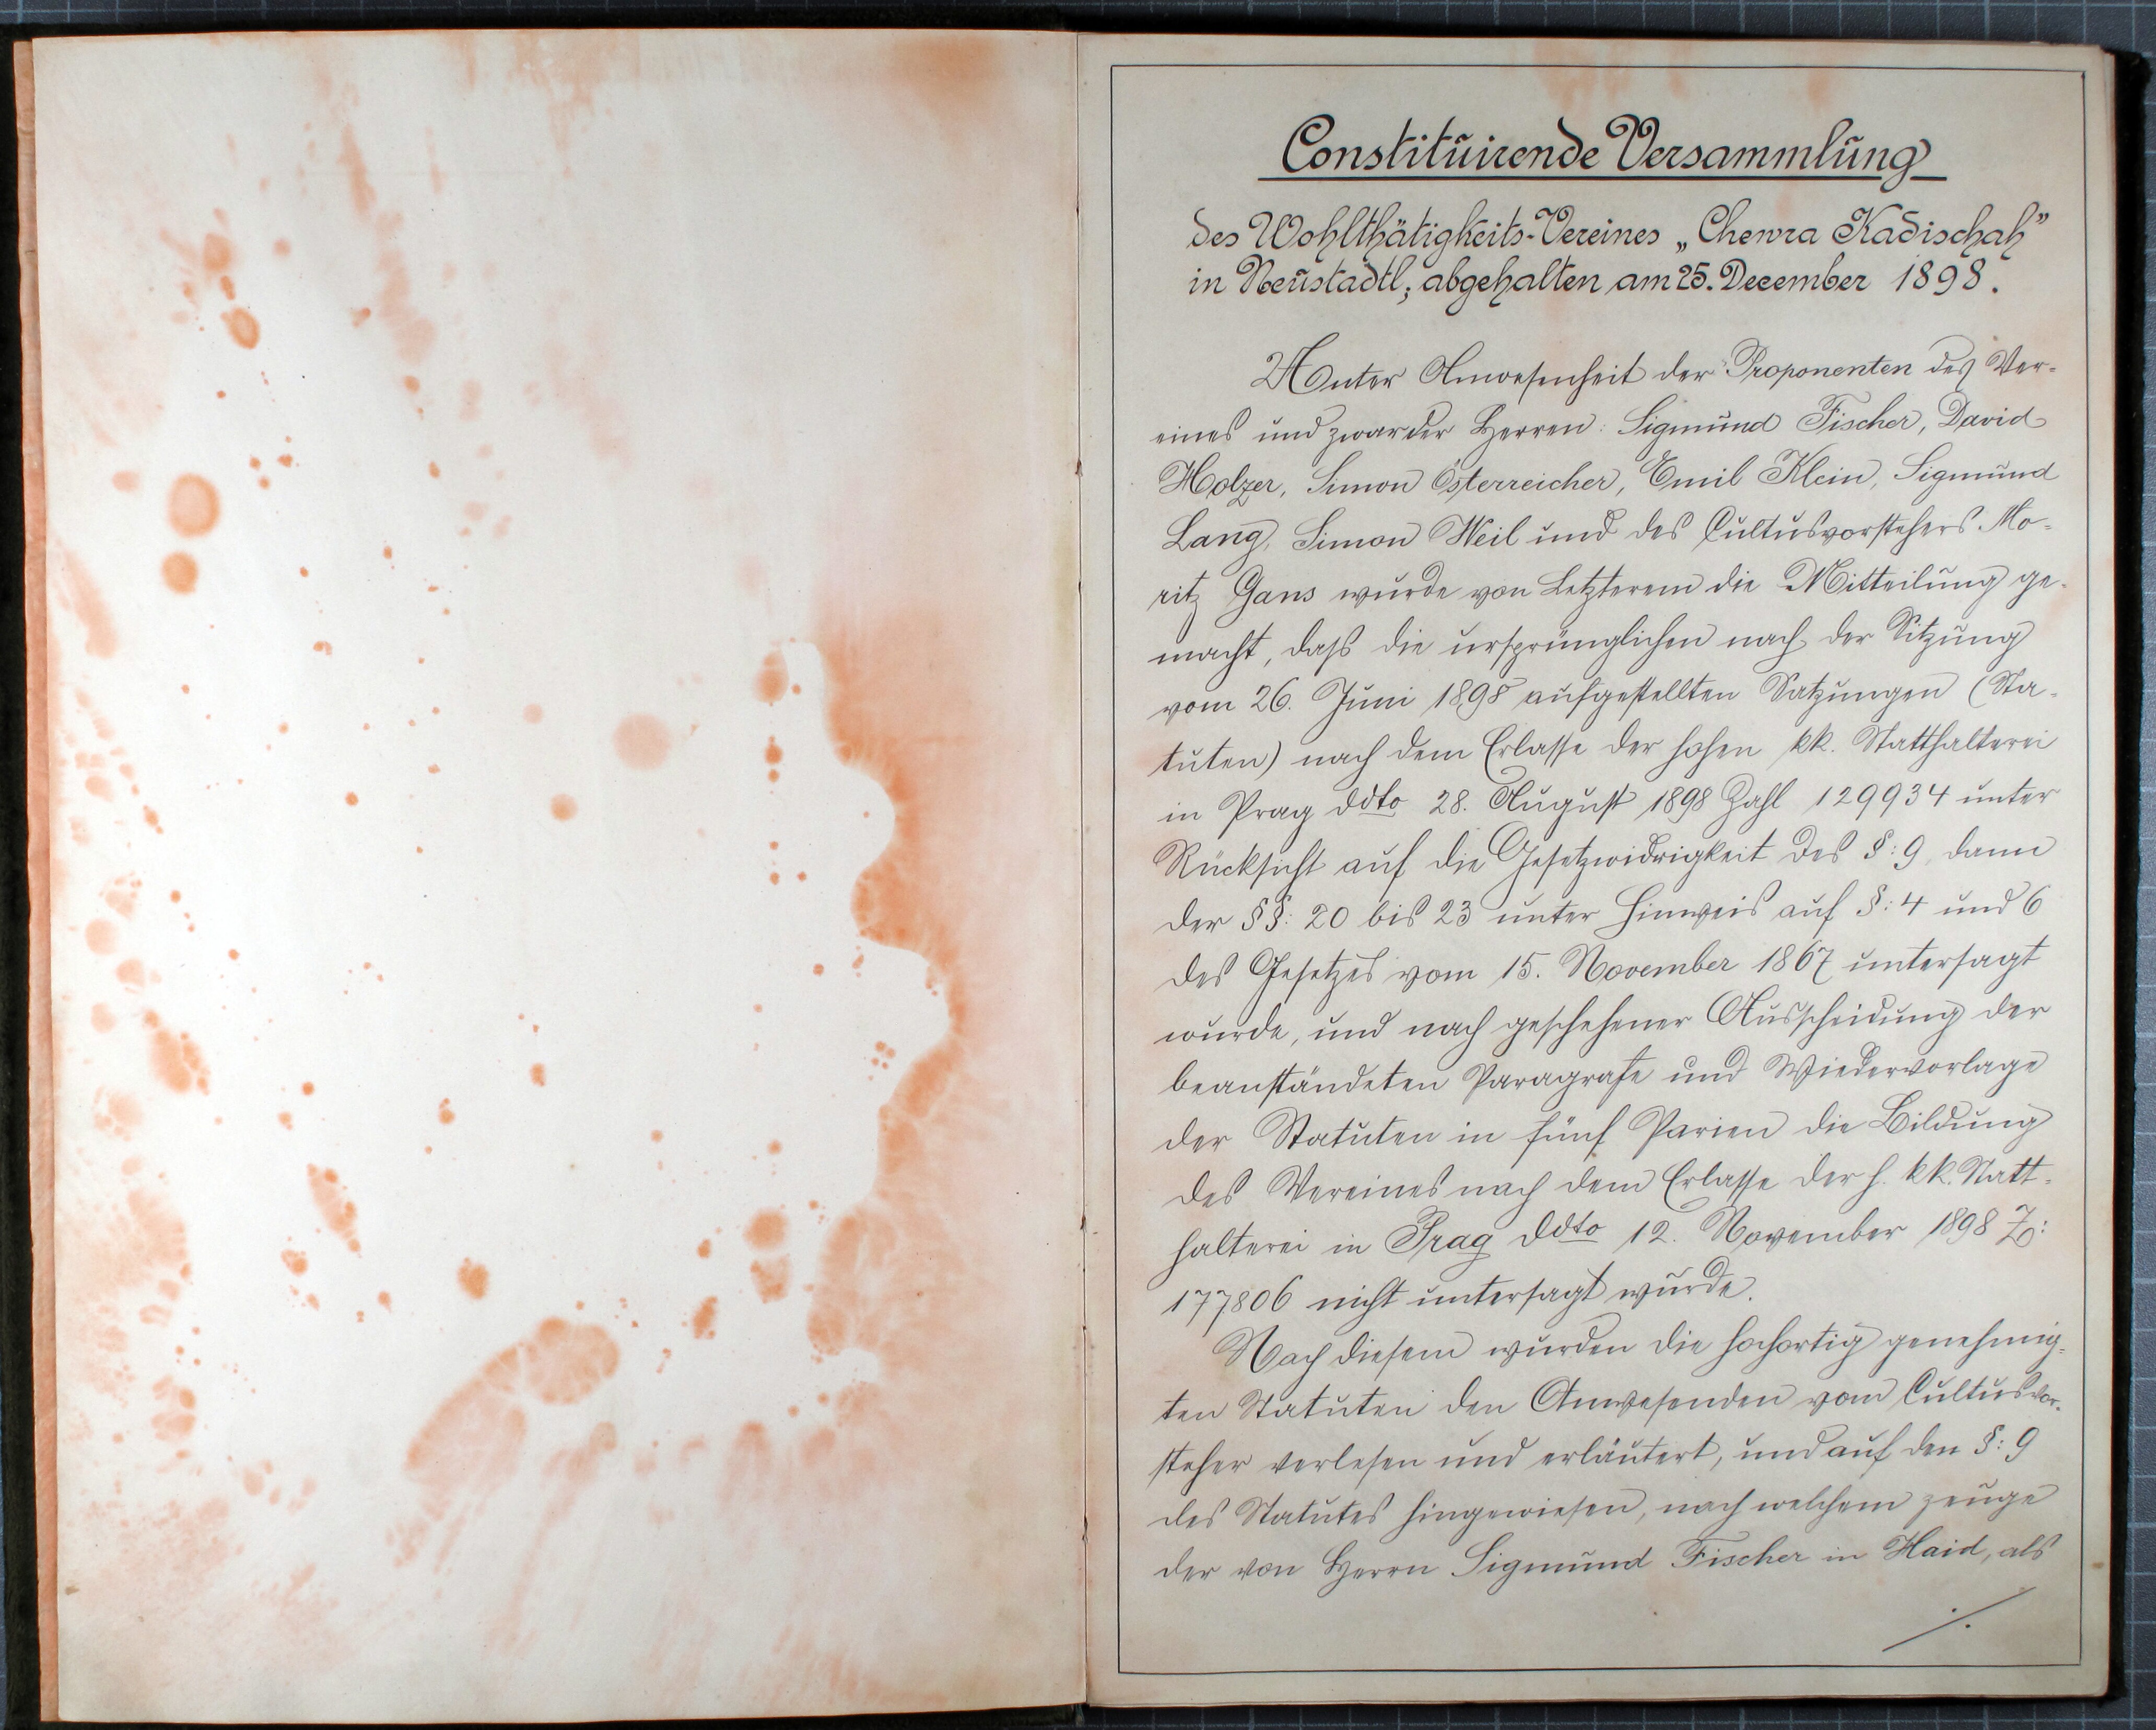 Constituirende Versammlung
des Wohlthätigkeits-Vereines „Chewra Kadischah”
in Neustadtl, abgehalten am 25. December 1898.
Unter Anwesenheit der Proponenten des Ver-
eines und zwar der Herren: Sigmund Fischer, David
Holzer, Simon Österreicher, Emil Klein, Sigmund
Lang, Simon Weil und des Cultusvorstehers Mo-
ritz Gans wurde von Letzterem die Mitteilung ge-
macht, daß die ursprünglichen nach der Sitzung
vom 26. Juni 1898 aufgestellten Satzungen (Sta-
tuten) nach dem Erlasse der hohen kk. Statthalterei
in Prag ddto 28. August 1898 Zahl 129934 unter
Rücksicht auf die Gesetzwidrigkeit des §: 9, dann
der §§: 20 bis 23 unter Hinweis auf §: 4 und 6
des Gesetzes vom 15. November 1867 untersagt
wurde, und nach geschehener Ausscheidung der
beanständeten Paragrafe und Wiedervorlage
der Statuten in fünf Parien die Bildung
des Vereines nach dem Erlasse der h. kk. Statt-
halterei in Prag ddto 12. November 1898 Z:
177806 nicht untersagt wurde.
Nach diesem wurden die hochortig genehmig-
ten Statuten den Anwesenden vom Cultusvor-
steher verlesen und erläutert, und auf den §: 9
des Statutes hingewiesen, nach welchem zeuge
der von Herrn Sigmund Fischer in Haid, als
./.